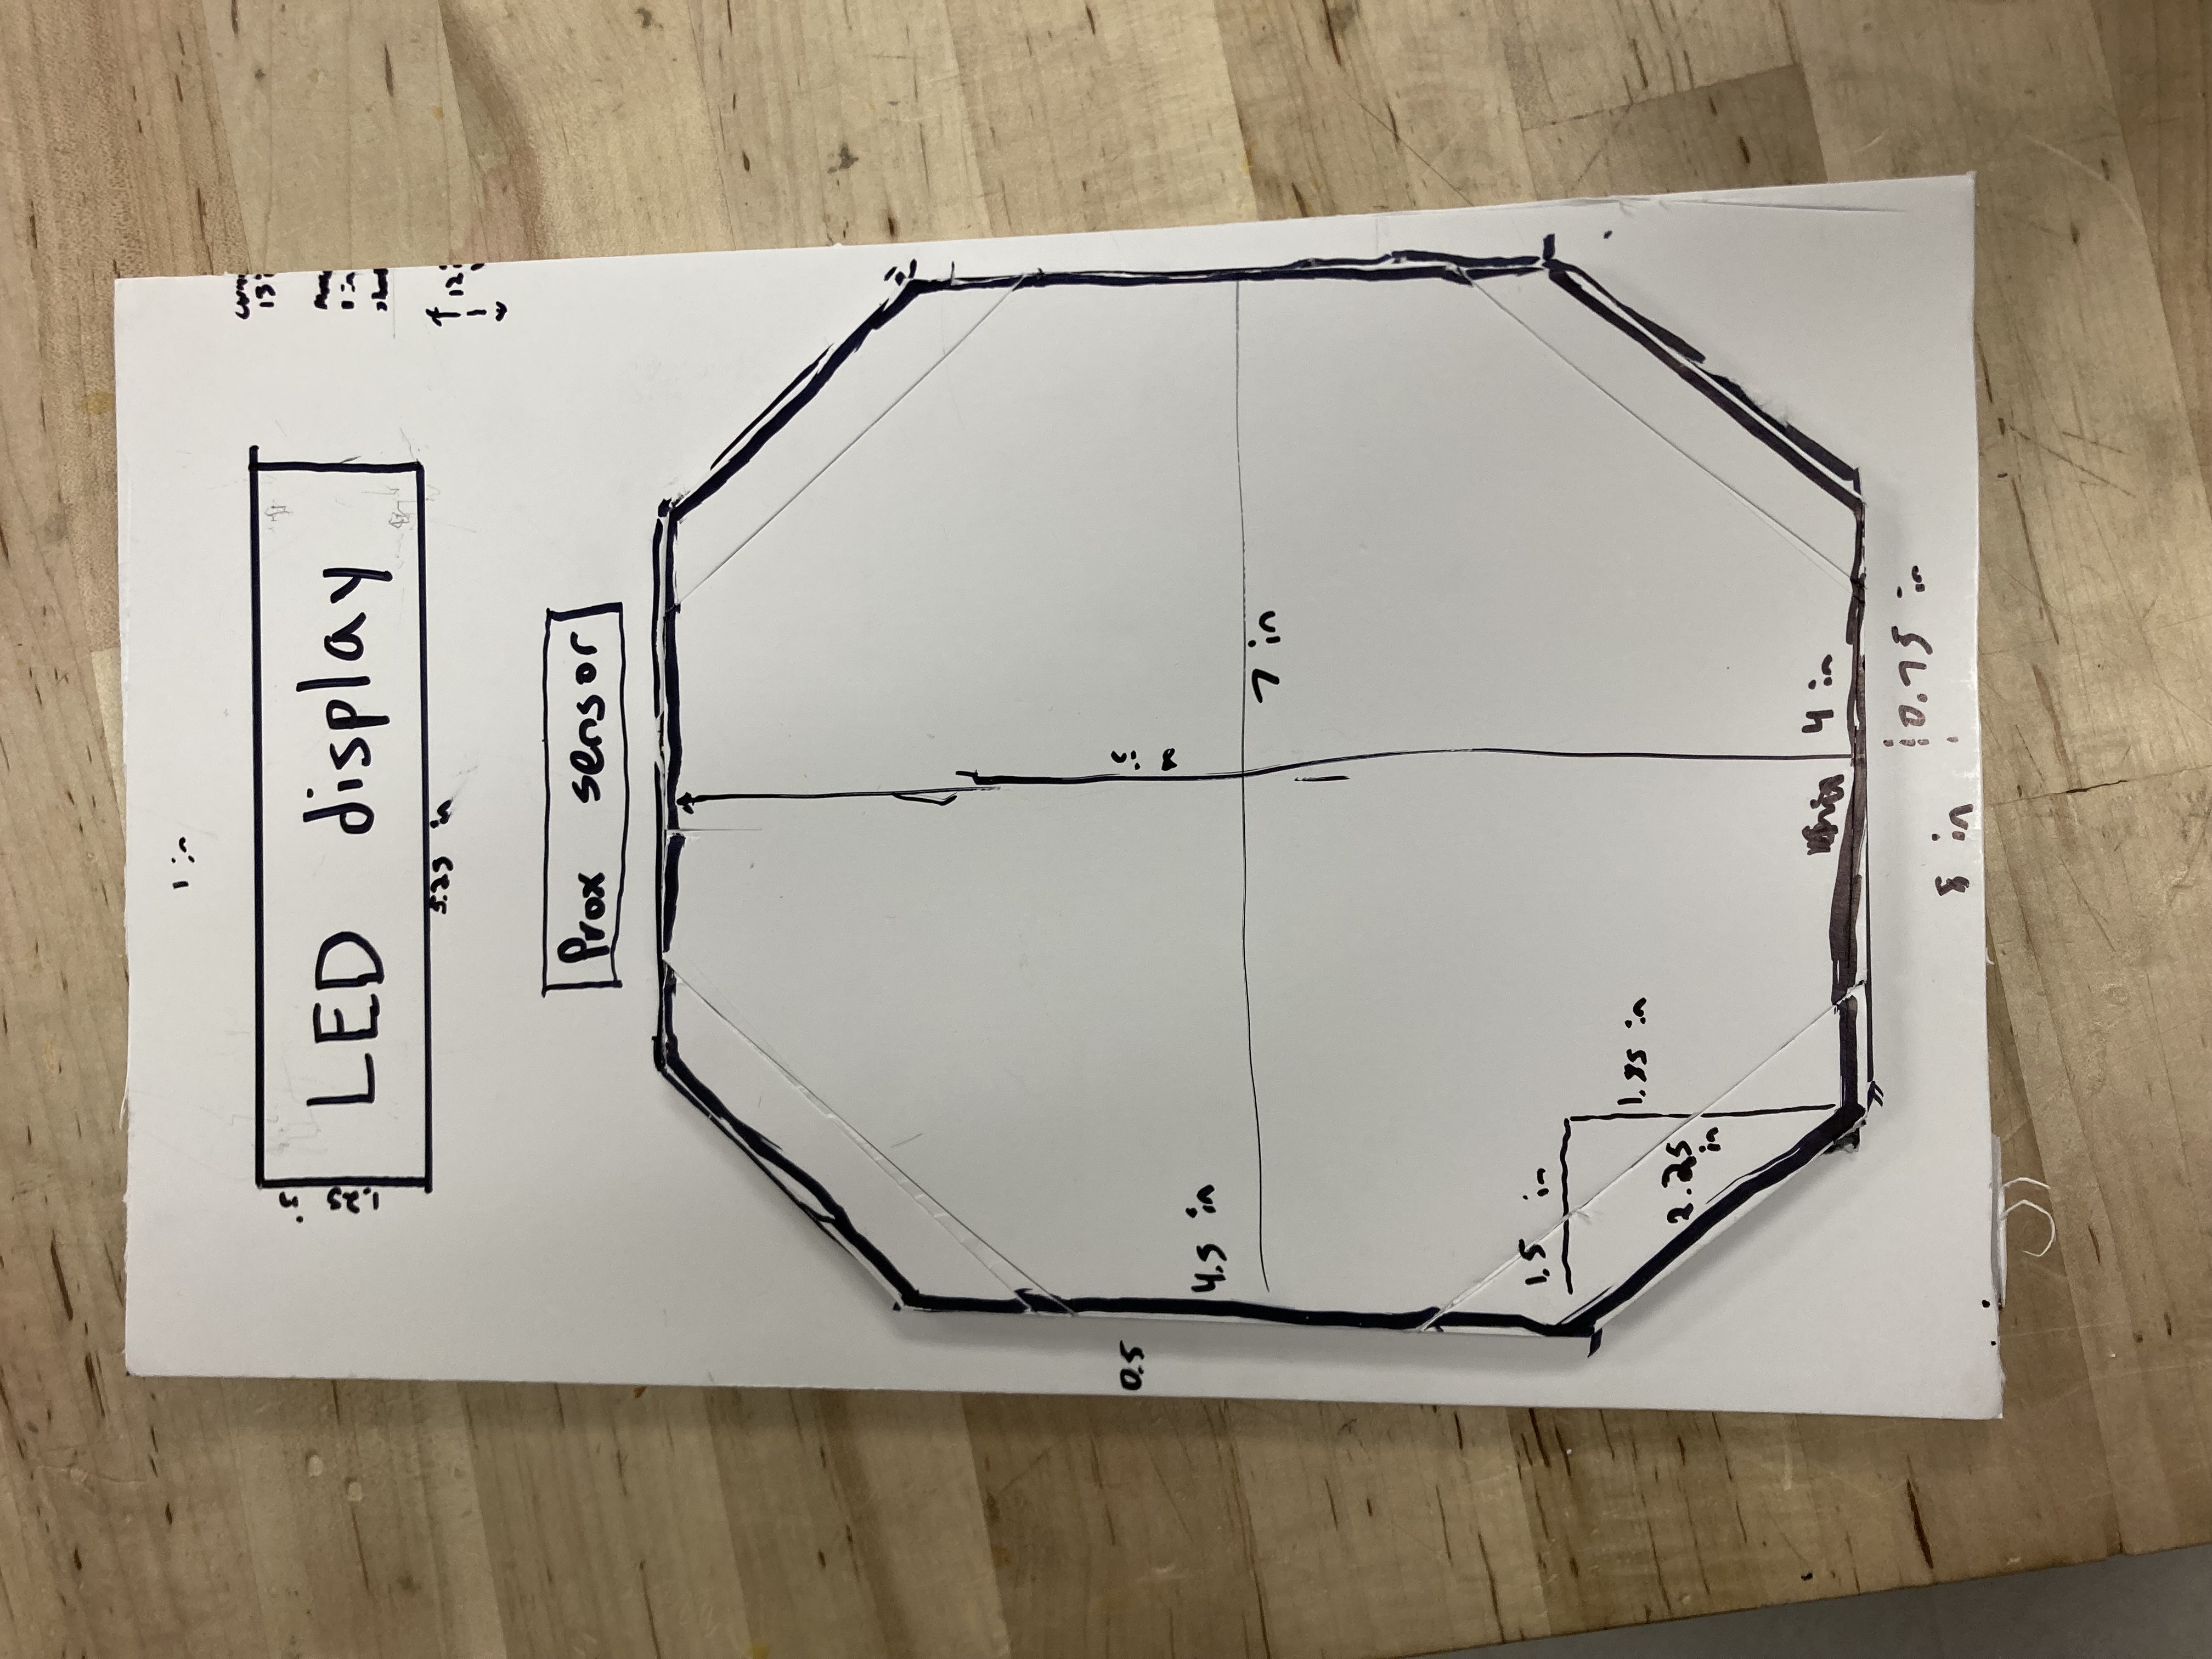 1 in
LED display
1.25 in
5.25 in
13
1 in
12
Prox sensor
0.5
8 in
4.5 in
7 in
1.5 in
1.85 in
2.25
in
4 in
0.75 in
8 in